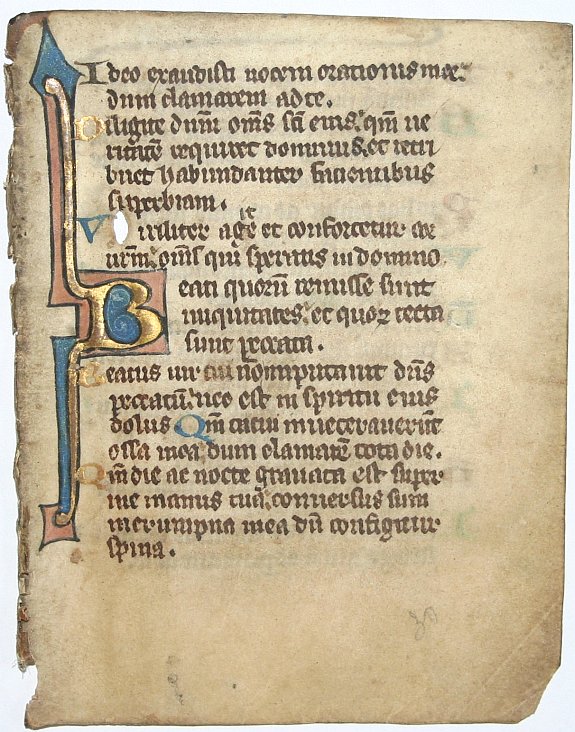 Ideo exaudisti uocem orationis mee
dum clamarem ad te.
Diligite dnm oms sci eius. qm ue
ritate requiret dominus. et retri
buet habundanter facientibus
superbiam.
Viriliter agite et confortetur cor
urm. oms qui speratis in domino
Beati quorum remisse sunt
iniquitates. et quor tecta
sunt peccata.
Beatus uir cui non imputauit dns
peccatu. nec est in spiritu eius
dolus Qm tacui inueterauerunt
ossa mea. dum clamare tota die.
Qm die ac nocte grauata est super
me manus tua. conuersus sum
in erumpna mea du configitur
spina.